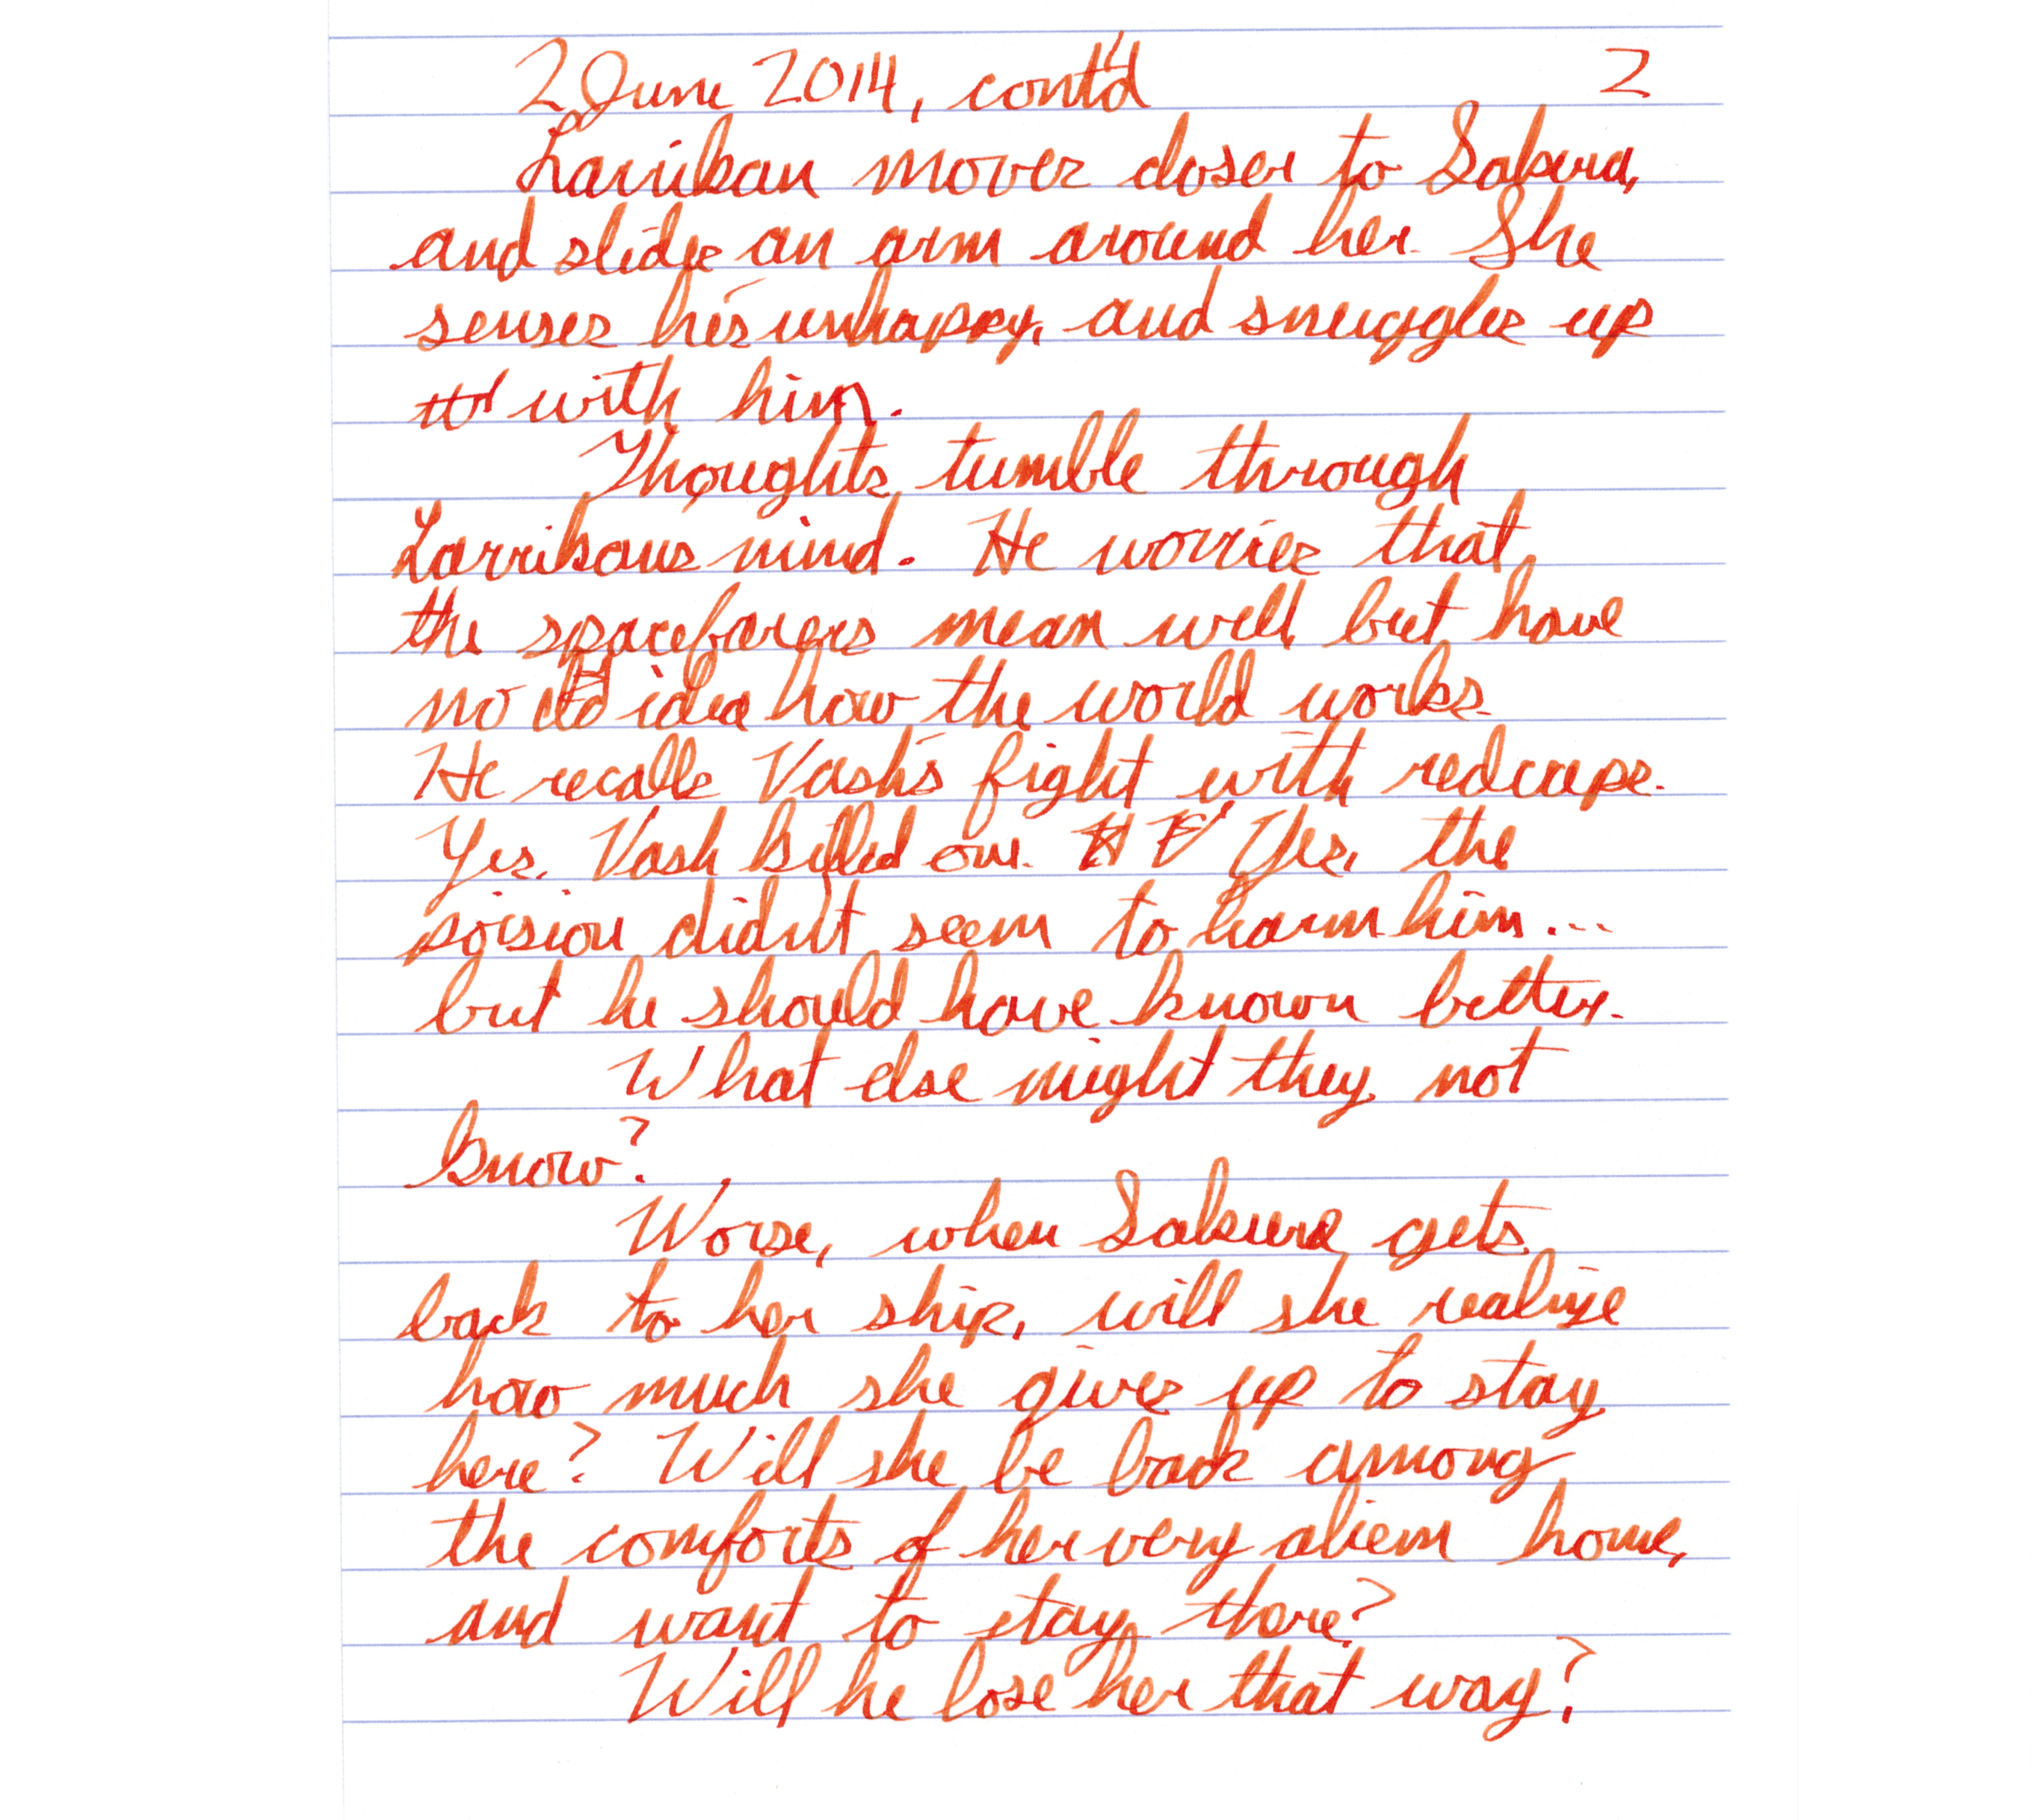 2 June 2014, cont'd 2
Larrikan moves closer to Sakura,
and slides an arm around her. She
senses he's unhappy, and snuggles up
with him.
Thoughts tumble through
Larrikans mind. He worries that
the spacefarers mean well but have
no idea how the world works.
He recalls Vash's fight with redcaps.
Yes, Vash killed one. Yes, the
poision didn't seem to harm him...
but he should have known better.
What else might they not
know?
Worse, when Sakura gets
back to her ship, will she realize
how much she gives up to stay
here? Will she be back among
the comforts of her very aliem home,
and want to stay there?
Will he lose her that way?